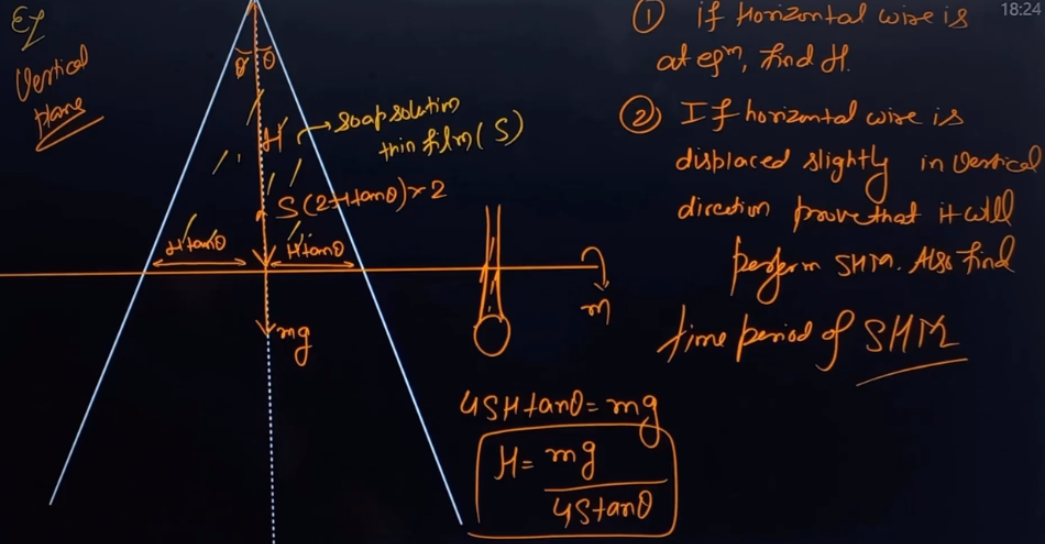 Eg
Vertical
Plane
θ θ
H
soap solution
thin film (S)
S(2Htanθ)×2
Htanθ
Htanθ
mg
m
4SHtanθ = mg
H = mg
4Stanθ
18:24
① if Horizontal wire is
at eqm, find H.
② If horizontal wire is
displaced slightly in vertical
direction prove that it will
perform SHM. Also find
time period of SHM